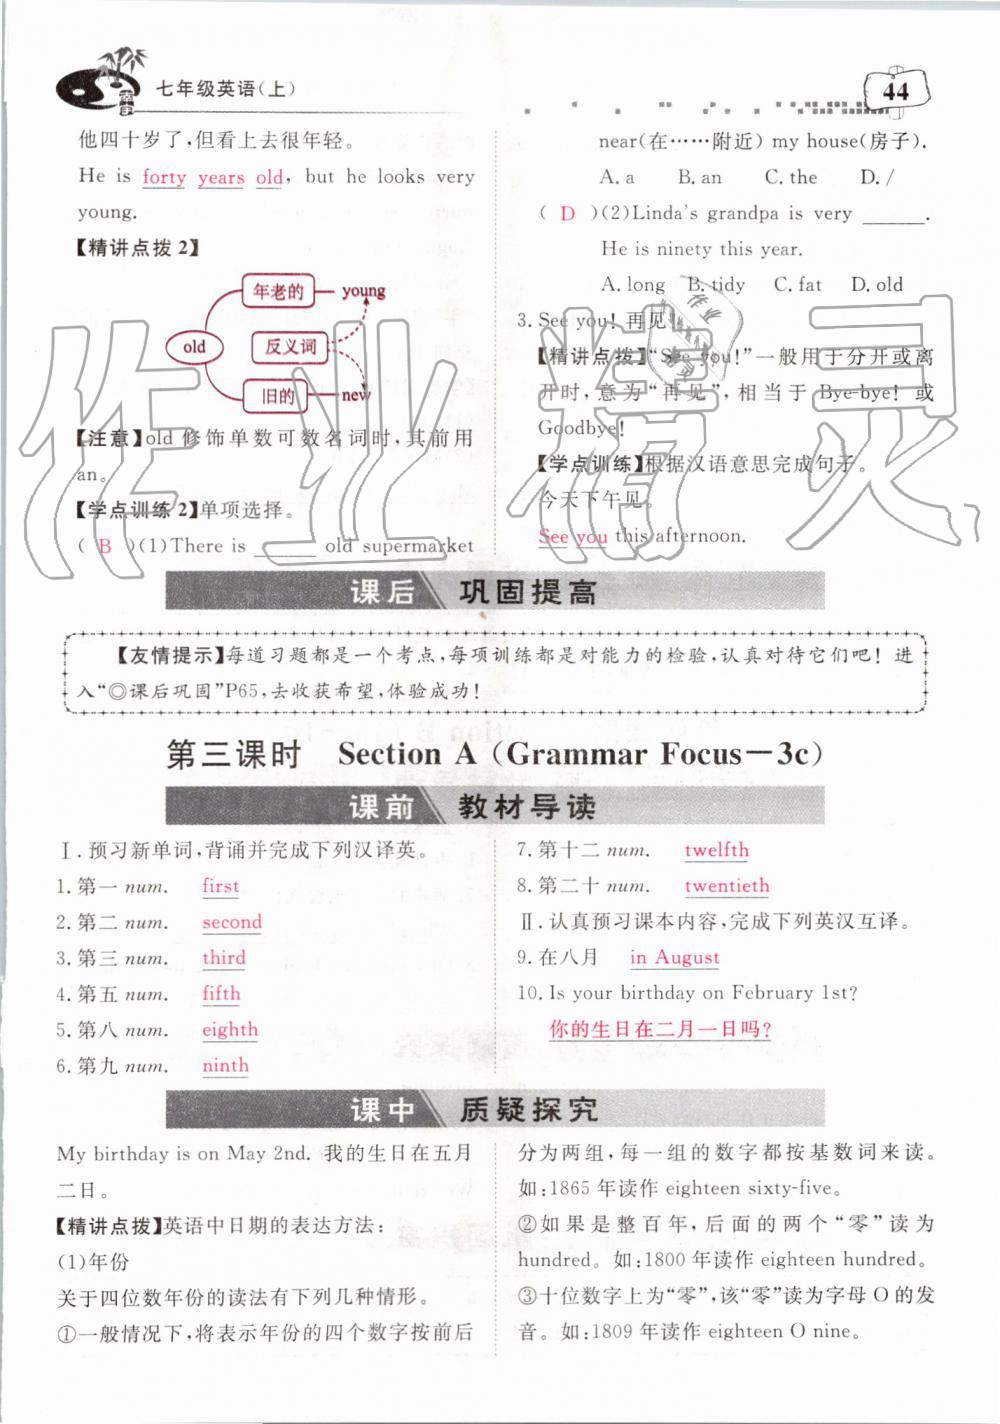 七年级英语(上)
44
他四十岁了,但看上去很年轻。
He is forty years old, but he looks very
young.
【精讲点拨2】
old
年老的
young
反义词
旧的
new
【注意】old 修饰单数可数名词时,其前用
an。
【学点训练2】单项选择。
( B )(1)There is ______ old supermarket
near(在……附近) my house(房子).
A. a B. an C. the D. /
( D )(2)Linda's grandpa is very ______.
He is ninety this year.
A. long B. tidy C. fat D. old
3. See you! 再见!
【精讲点拨】“See you!”一般用于分开或离
开时,意为“再见”,相当于 Bye-bye! 或
Goodbye!
【学点训练】根据汉语意思完成句子。
今天下午见。
See you this afternoon.
课后 巩固提高
【友情提示】每道习题都是一个考点,每项训练都是对能力的检验,认真对待它们吧!进
入“◎课后巩固”P65,去收获希望,体验成功!
第三课时 Section A (Grammar Focus—3c)
课前 教材导读
Ⅰ. 预习新单词,背诵并完成下列汉译英。
1. 第一 num. first
2. 第二 num. second
3. 第三 num. third
4. 第五 num. fifth
5. 第八 num. eighth
6. 第九 num. ninth
7. 第十二 num. twelfth
8. 第二十 num. twentieth
Ⅱ. 认真预习课本内容,完成下列英汉互译。
9. 在八月 in August
10. Is your birthday on February 1st?
你的生日在二月一日吗?
课中 质疑探究
My birthday is on May 2nd. 我的生日在五月
二日。
【精讲点拨】英语中日期的表达方法:
(1)年份
关于四位数年份的读法有下列几种情形。
①一般情况下,将表示年份的四个数字按前后
分为两组,每一组的数字都按基数词来读。
如:1865年读作 eighteen sixty-five。
②如果是整百年,后面的两个“零”读为
hundred。如:1800年读作 eighteen hundred。
③十位数字上为“零”,该“零”读为字母 O 的发
音。如:1809年读作 eighteen O nine。
作业精灵